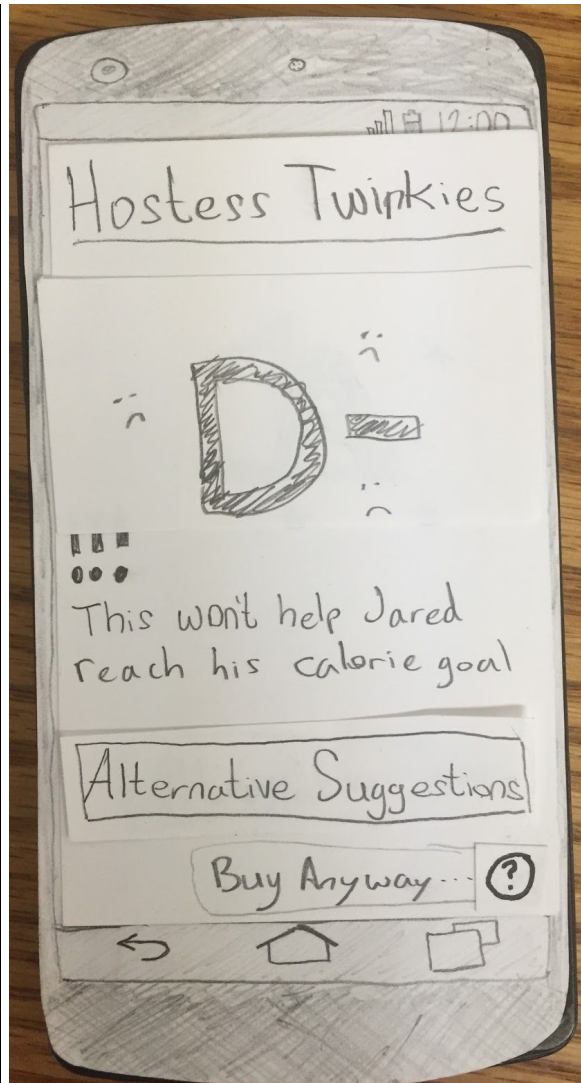 12:00
Hostess Twinkies
D-
!!!
This won't help Jared
reach his calorie goal
Alternative Suggestions
Buy Anyway...
?